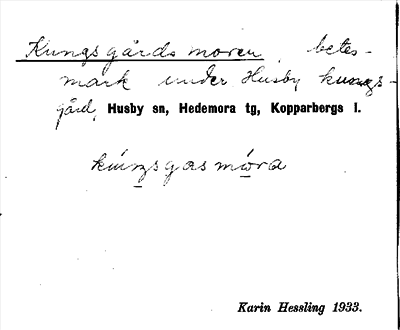 Kungsgårdsmoren, betes-
mark under Husby kungs-
gård, Husby sn, Hedemora tg, Kopparbergs l.
kúngsgasmóra
Karin Hessling 1933.